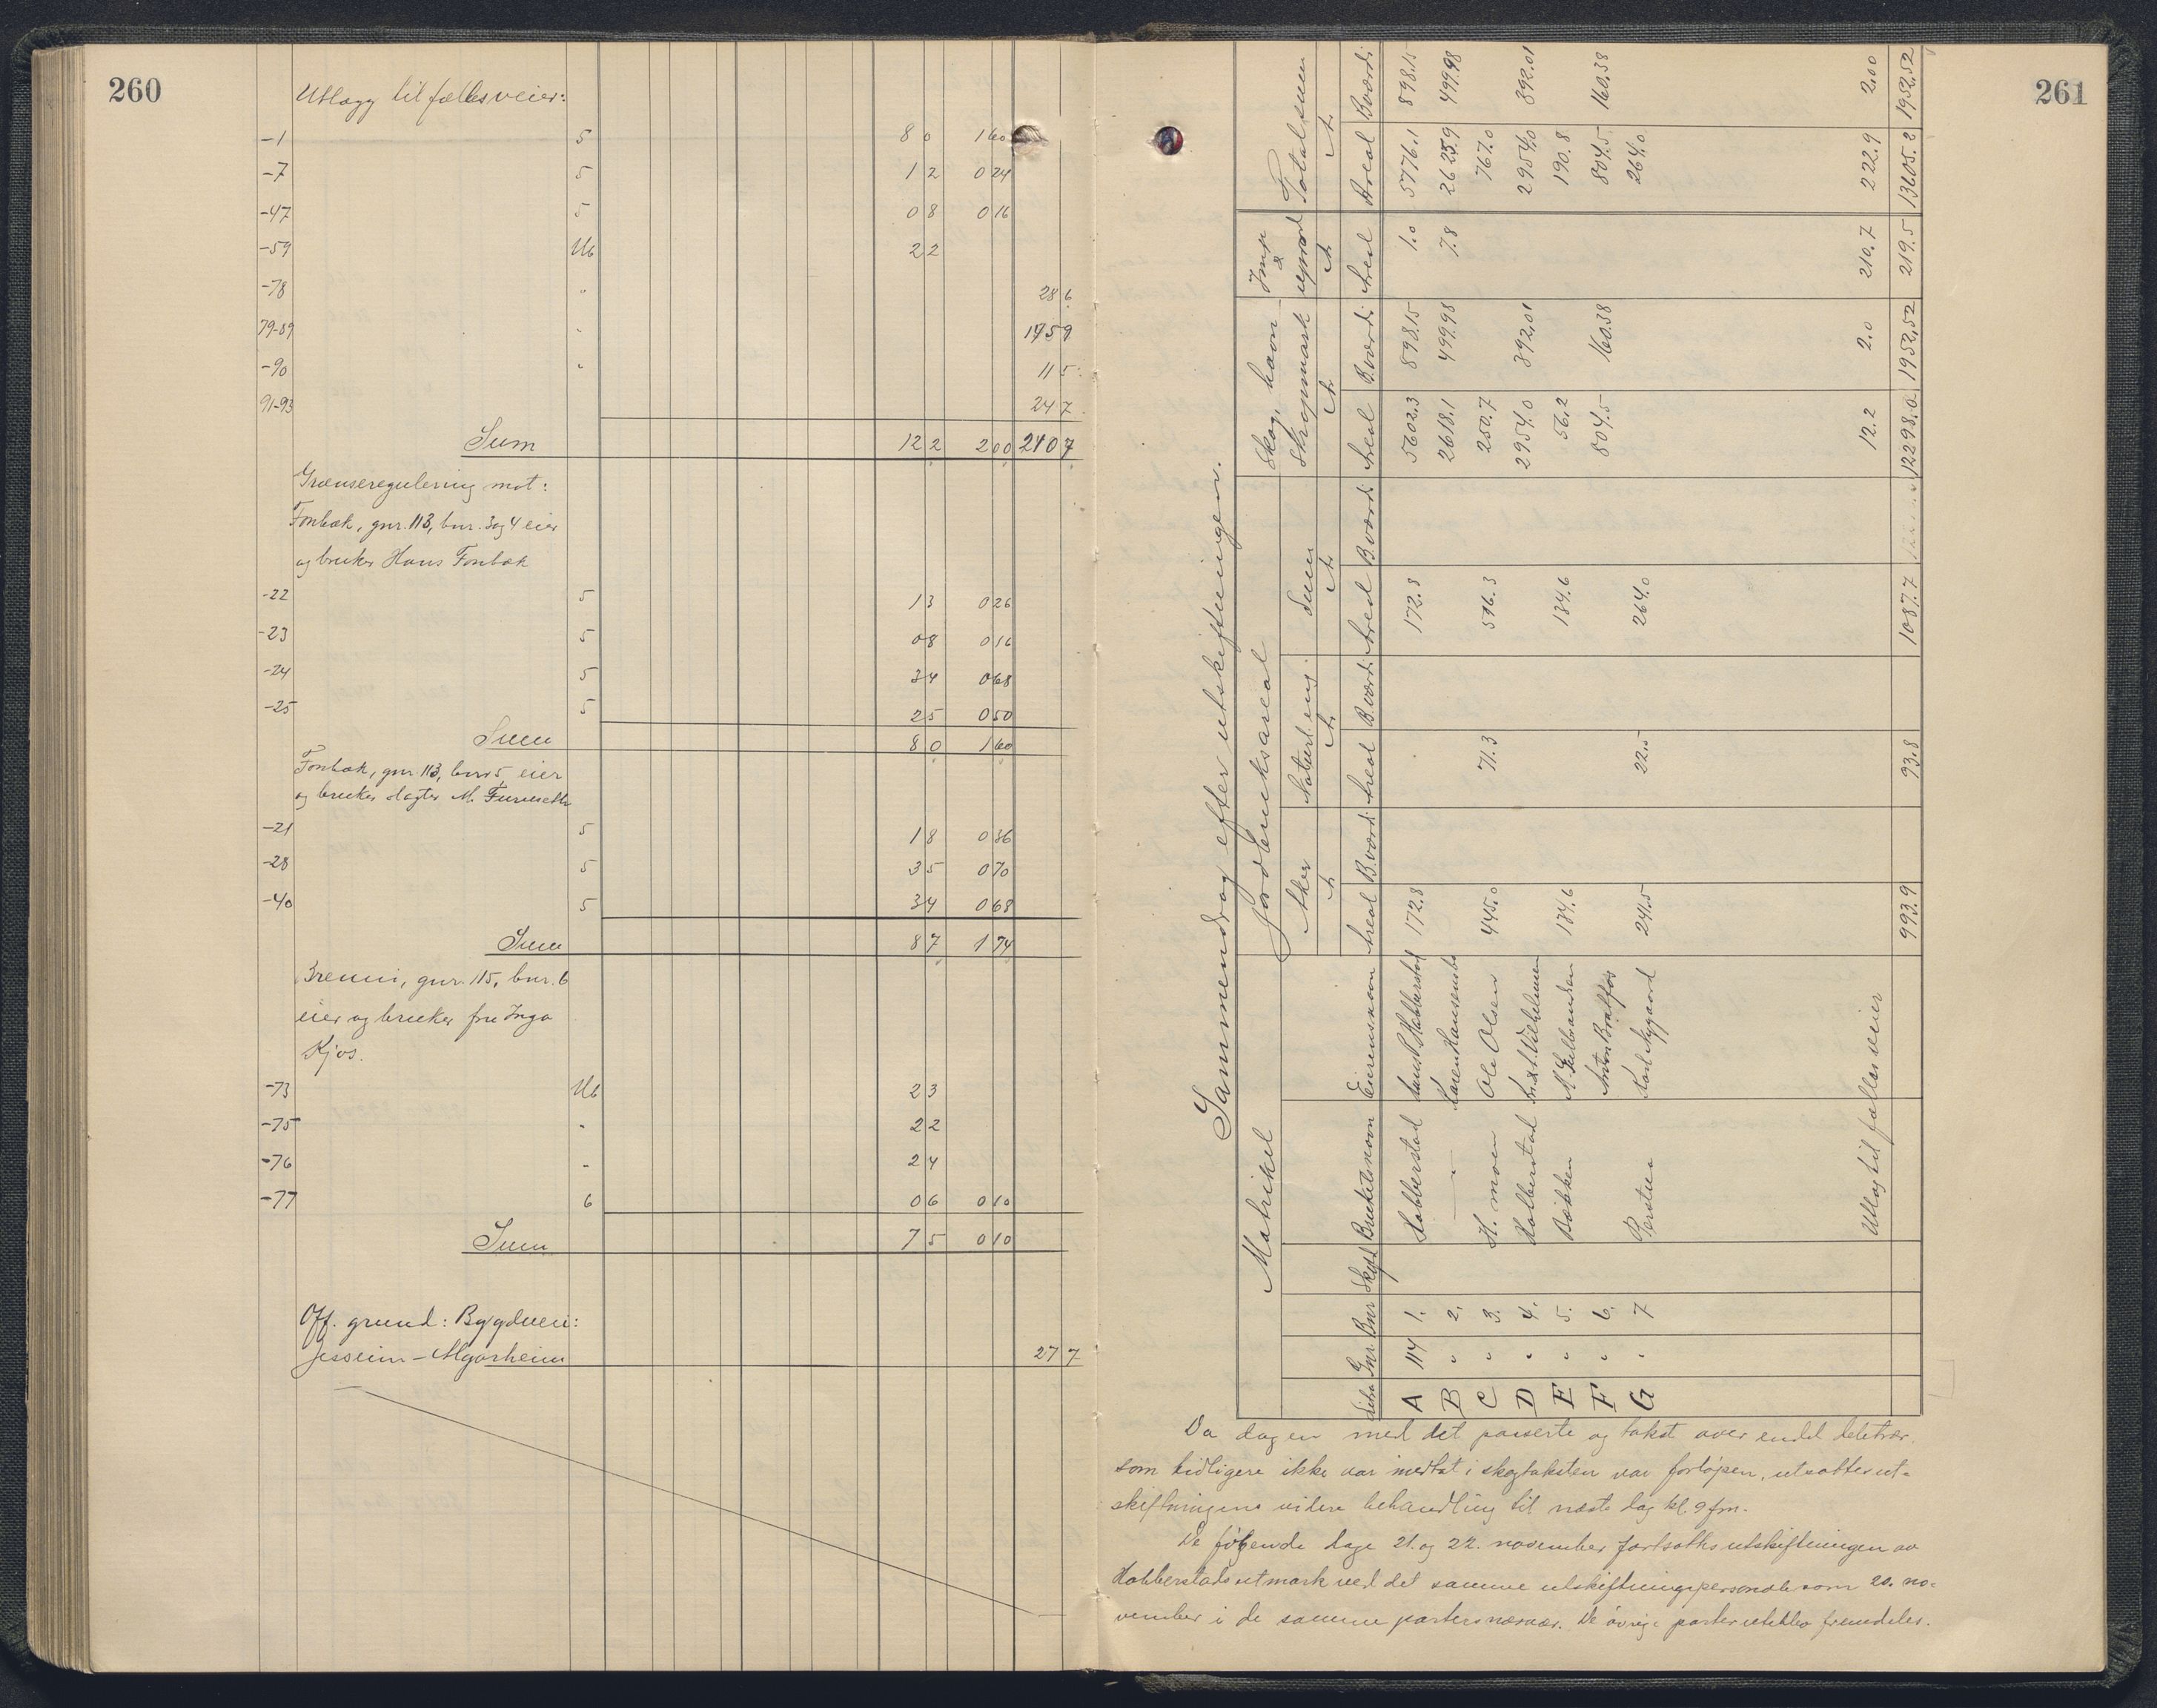 260
Utlagg til fællesveier:
-1 5 8 0 1 60
-7 5 1 2 0 24
-47 5 0 8 0 16
-59 Ub 2 2
-78 " 28 6
79-89 " 175 9
-90 " 11 5
91-93 24 7
Sum 12 2 2 00 240 7
Grænseregulering mot:
Fonbæk, gnr. 113, bnr. 3 og 4 eier
og bruker Hans Fonbæk
-22 5 1 3 0 26
-23 5 0 8 0 16
-24 5 3 4 0 68
-25 5 2 5 0 50
Sum 8 0 1 60
Fonbæk, gnr. 113, bnr 5 eier
og bruker M. Furuseth
-21 5 1 8 0 36
-28 5 3 5 0 70
-40 5 3 4 0 68
Sum 8 7 1 74
Brenni, gnr. 115, bnr. 6
eier og bruker fru Inga
Kjos.
-73 Ub 2 3
-75 " 2 2
-76 " 2 4
-77 6 0 6 0 10
Sum 7 5 0 10
Off. grund: Bygdvei:
Jessheim - Algarheim 27 7
261
Sammendrag efter utskiftningen.
Matrikel Jordbruksareal Skog, havn Imp & Totalsum
Aker Naturl. eng Sum Skrapmark uprod
Litra Gnr Bnr Skyld Bruketsnavn Eierensnavn Areal B.værdi Areal B.værdi Areal B.værdi Areal B.værdi Areal Areal B.værdi
A 114 1. Habberstad Hans P. Habberstad 172.8 172.8 5602.3 898.15 1.0 5776.1 898.15
B " 2. " Karen Hansensbo 2618.1 499.98 7.8 2625.9 499.98
C " 3. H. moen Ole Olsen 445.0 71.3 516.3 250.7 767.0
D " 4. Habberstad Vilhelmsen 2954.0 392.01 2954.0 392.01
E " 5. Bakken N. Gulbrandsen 134.6 134.6 56.2 190.8
F " 6. Anton Bratfos 804.5 160.38 804.5 160.38
G " 7 Perstua Karl Nygaard 241.5 22.5 264.0 264.0
Utlag til fælles veier 12.2 2.0 210.7 222.9 2.00
993.9 93.8 1087.7 12298.0 1952.52 219.5 13605.2 1952.52
Da dagen med det passerte og takst over endel deletrær
som tidligere ikke var medtat i skogtaksten var forløpen, utsattes ut-
skiftningens videre behandling til næste dag kl. 9 fm.
De følgende dage 21. og 22. november fortsattes utskiftningen av
Habberstads utmark ved det samme utskiftningspersonale som 20. no-
vember i de samme parters nærvær. De øvrige parter uteblev fremdeles.